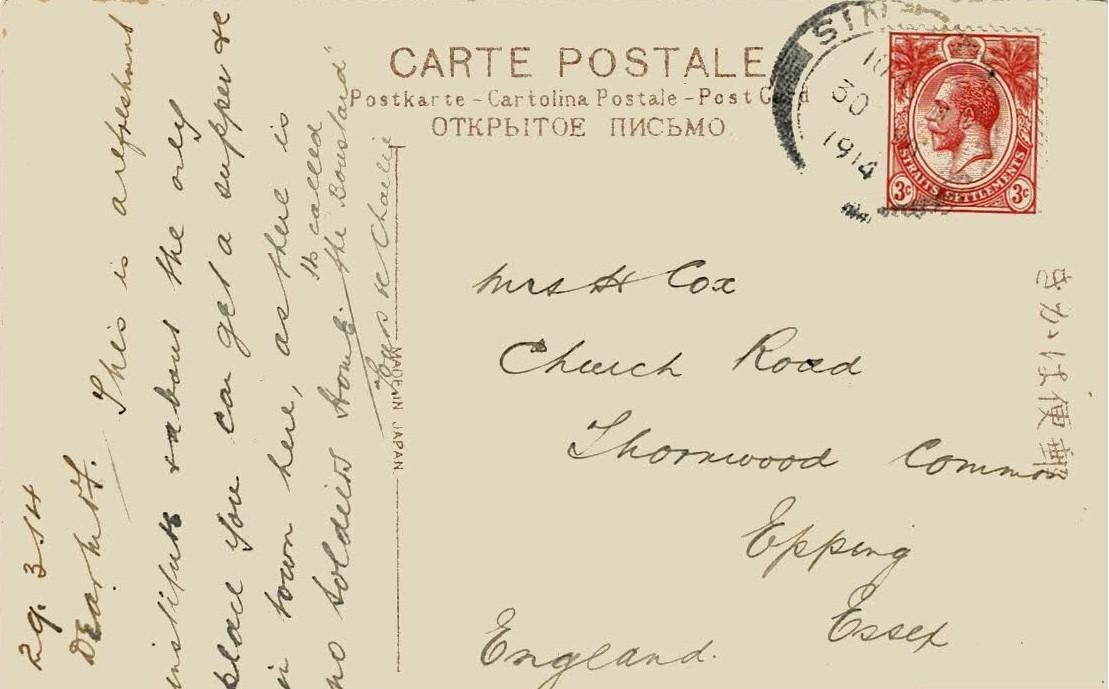 CARTE POSTALE
Postkarte - Cartolina Postale - Post Card
ОТКРЫТОЕ ПИСЬМО
SIN
30
1914
STRAITS SETTLEMENTS
3c 3c
29.3.14
Dear
This is a refreshment
institute about the only
place you can get a supper &c
in town here, as there is
no soldiers home. Its called
"the Boustead"
Charlie
MADE IN JAPAN.
Mrs H Cox
Church Road
Thornwood Common
Epping
Essex
England.
きかは便郵